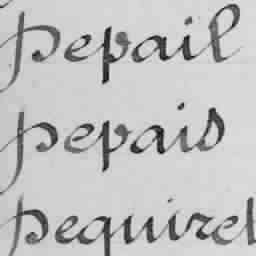 pepail
pepais
pequirel